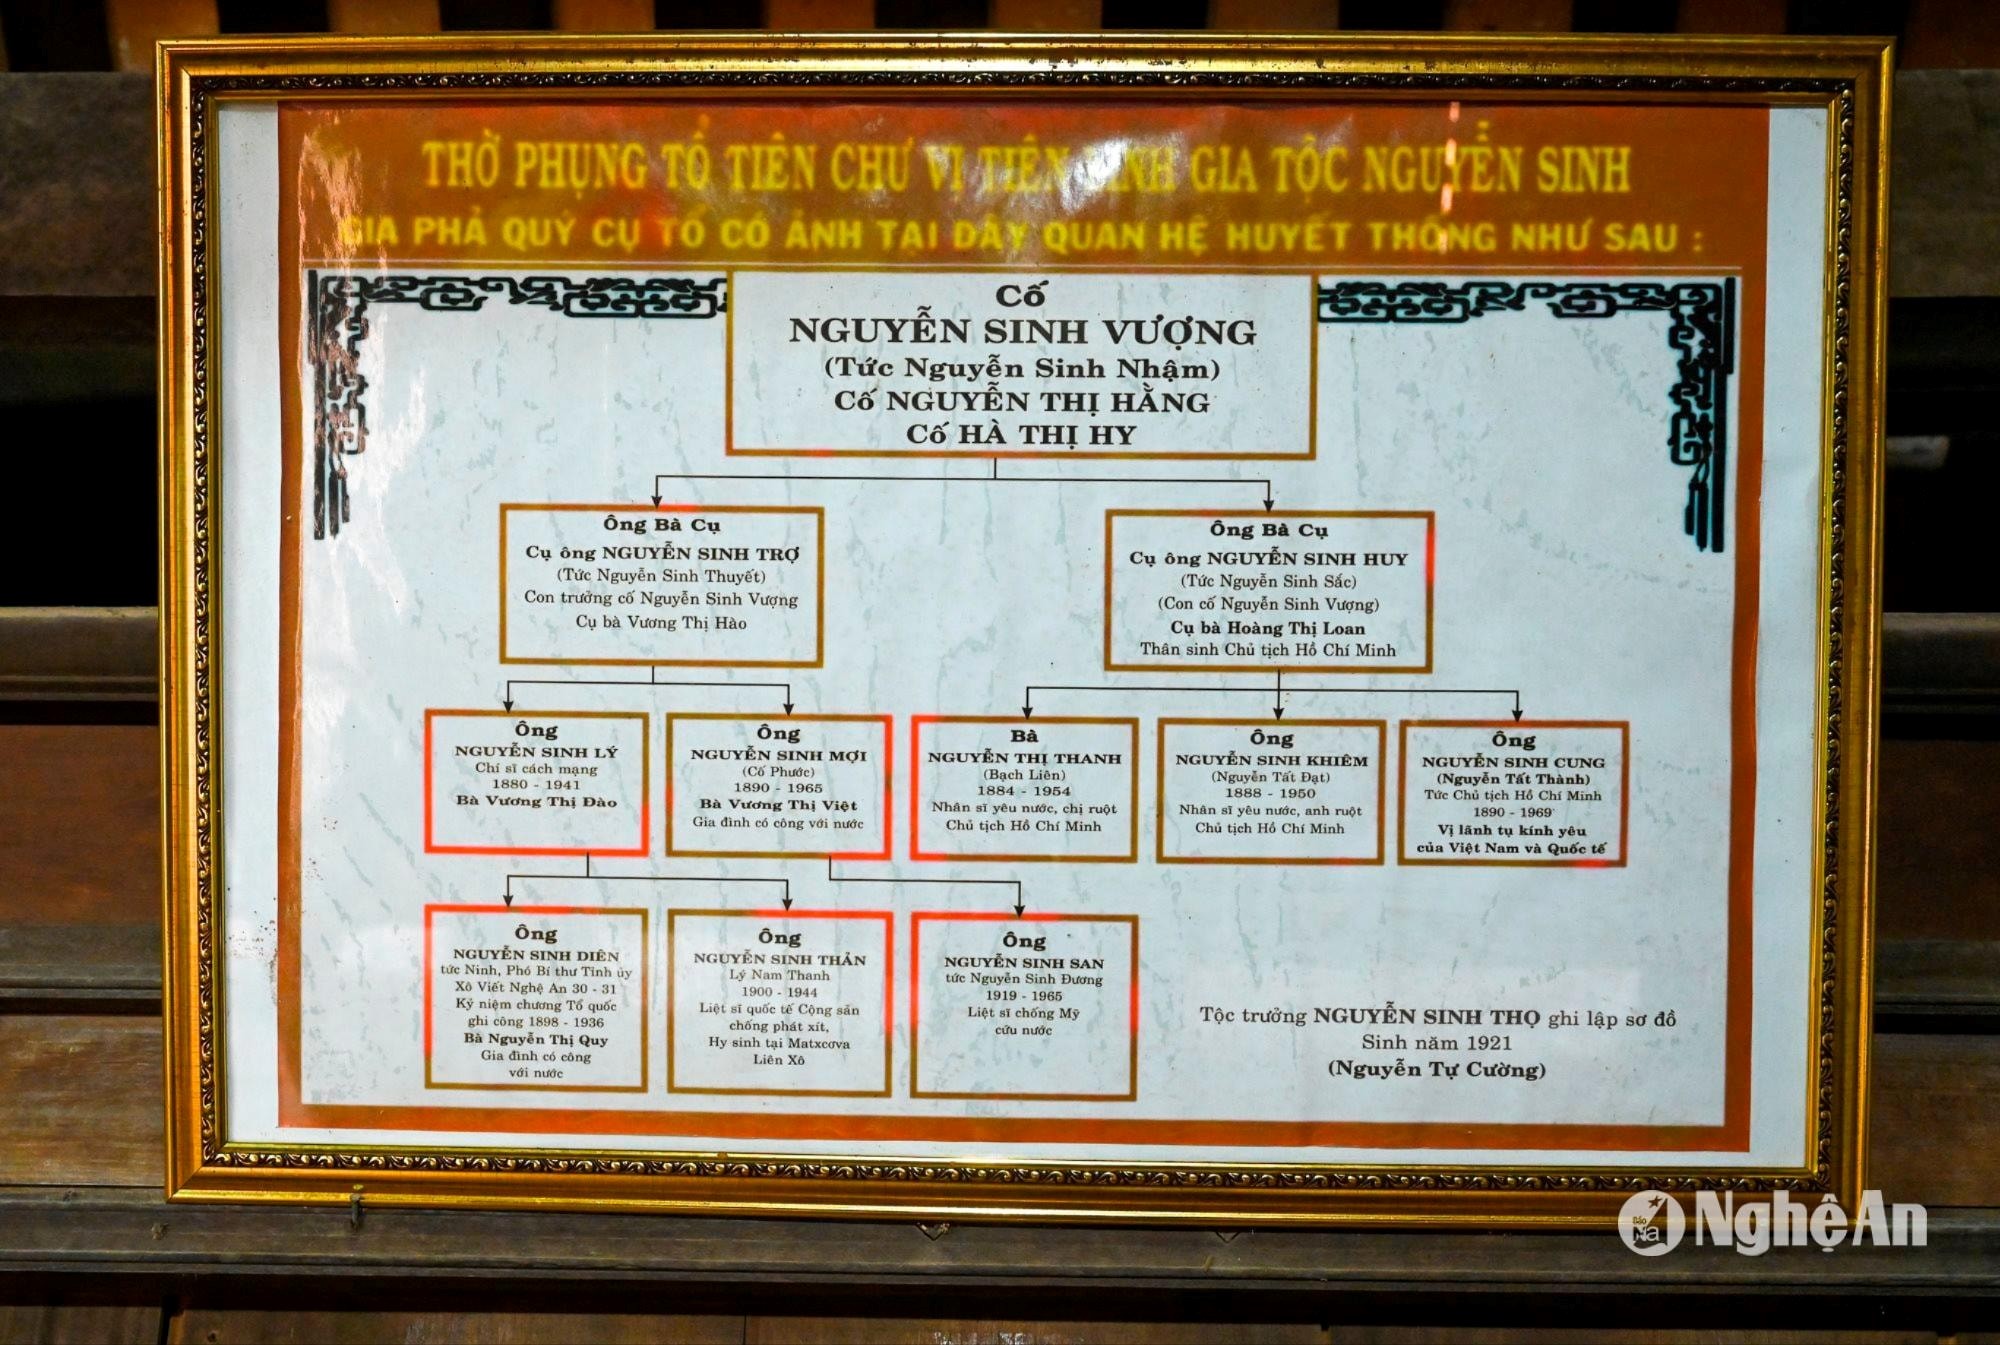 THỜ PHỤNG TỔ TIÊN CHƯ VỊ TIÊN SINH GIA TỘC NGUYỄN SINH
GIA PHẢ QUÝ CỤ TỔ CÓ ẢNH TẠI ĐÂY QUAN HỆ HUYẾT THỐNG NHƯ SAU :
Cố
NGUYỄN SINH VƯỢNG
(Tức Nguyễn Sinh Nhậm)
Cố NGUYỄN THỊ HẰNG
Cố HÀ THỊ HY
Ông Bà Cụ
Cụ ông NGUYỄN SINH TRỢ
(Tức Nguyễn Sinh Thuyết)
Con trưởng cố Nguyễn Sinh Vượng
Cụ bà Vương Thị Hào
Ông Bà Cụ
Cụ ông NGUYỄN SINH HUY
(Tức Nguyễn Sinh Sắc)
(Con cố Nguyễn Sinh Vượng)
Cụ bà Hoàng Thị Loan
Thân sinh Chủ tịch Hồ Chí Minh
Ông
NGUYỄN SINH LÝ
Chí sĩ cách mạng
1880 - 1941
Bà Vương Thị Đào
Ông
NGUYỄN SINH MỢI
(Cố Phước)
1890 - 1965
Bà Vương Thị Việt
Gia đình có công với nước
Bà
NGUYỄN THỊ THANH
(Bạch Liên)
1884 - 1954
Nhân sĩ yêu nước, chị ruột
Chủ tịch Hồ Chí Minh
Ông
NGUYỄN SINH KHIÊM
(Nguyễn Tất Đạt)
1888 - 1950
Nhân sĩ yêu nước, anh ruột
Chủ tịch Hồ Chí Minh
Ông
NGUYỄN SINH CUNG
(Nguyễn Tất Thành)
Tức Chủ tịch Hồ Chí Minh
1890 - 1969
Vị lãnh tụ kính yêu
của Việt Nam và Quốc tế
Ông
NGUYỄN SINH DIÊN
tức Ninh, Phó Bí thư Tỉnh ủy
Xô Viết Nghệ An 30 - 31
Kỷ niệm chương Tổ quốc
ghi công 1898 - 1936
Bà Nguyễn Thị Quy
Gia đình có công
với nước
Ông
NGUYỄN SINH THẢN
Lý Nam Thanh
1900 - 1944
Liệt sĩ quốc tế Cộng sản
chống phát xít,
Hy sinh tại Matxcơva
Liên Xô
Ông
NGUYỄN SINH SAN
tức Nguyễn Sinh Đương
1919 - 1965
Liệt sĩ chống Mỹ
cứu nước
Tộc trưởng NGUYỄN SINH THỌ ghi lập sơ đồ
Sinh năm 1921
(Nguyễn Tự Cường)
Báo Na Nghệ An